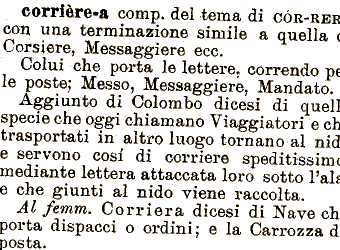 corrière-a comp. del tema di CÓR-RER
con una terminazione simile a quella
Corsiere, Messaggiere ecc.
Colui che porta le lettere, correndo pe
le poste; Messo, Messaggiere, Mandato.
Aggiunto di Colombo dicesi di quell
specie che oggi chiamano Viaggiatori e ch
trasportati in altro luogo tornano al nid
e servono cosí di corriere speditissimo
mediante lettera attaccata loro sotto l'ala
e che giunti al nido viene raccolta.
Al femm. Corriera dicesi di Nave ch
porta dispacci o ordini; e la Carrozza d
posta.